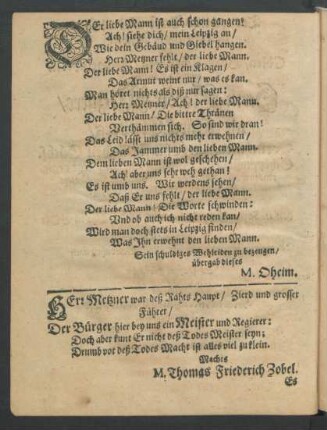 DEr liebe Mann ist auch schon gangen!
Ach! siehe dich/ mein Leipzig an/
Wie dein Gebäud und Giebel hangen.
Herr Metzner fehlt/ der liebe Mann.
Der liebe Mann! Es ist ein Klagen/
Das Armut weint nur/ was es kan.
Man höret nichts als diß nur sagen:
Herr Metzner/ Ach! der liebe Mann.
Der liebe Mann/ Die bittre Thränen
Verthämmen sich. So sind wir dran!
Das Leid lässt uns nichts mehr erwehnen/
Das Jammer umb den lieben Mann.
Dem lieben Mann ist wol geschehen/
Ach! aber uns sehr weh gethan!
Es ist umb uns. Wir werdens sehen/
Daß Er uns fehlt/ der liebe Mann.
Der liebe Mann! Die Worte schwinden:
Und ob auch ich nicht reden kan/
Wird man doch stets in Leipzig finden/
Was Ihn erwehnt den lieben Mann.
Sein schuldiges Wehleiden zu bezeugen/
übergab dieses
M. Oheim.
HErr Metzner war deß Rahts Haupt/ Zierd und grosser
Führer/
Der Bürger hier bey uns ein Meister und Regierer:
Doch aber kunt Er nicht deß Todes Meister seyn;
Drumb vor deß Todes Macht ist alles viel zu klein.
Machts
M. Thomas Friederich Zobel.
Es